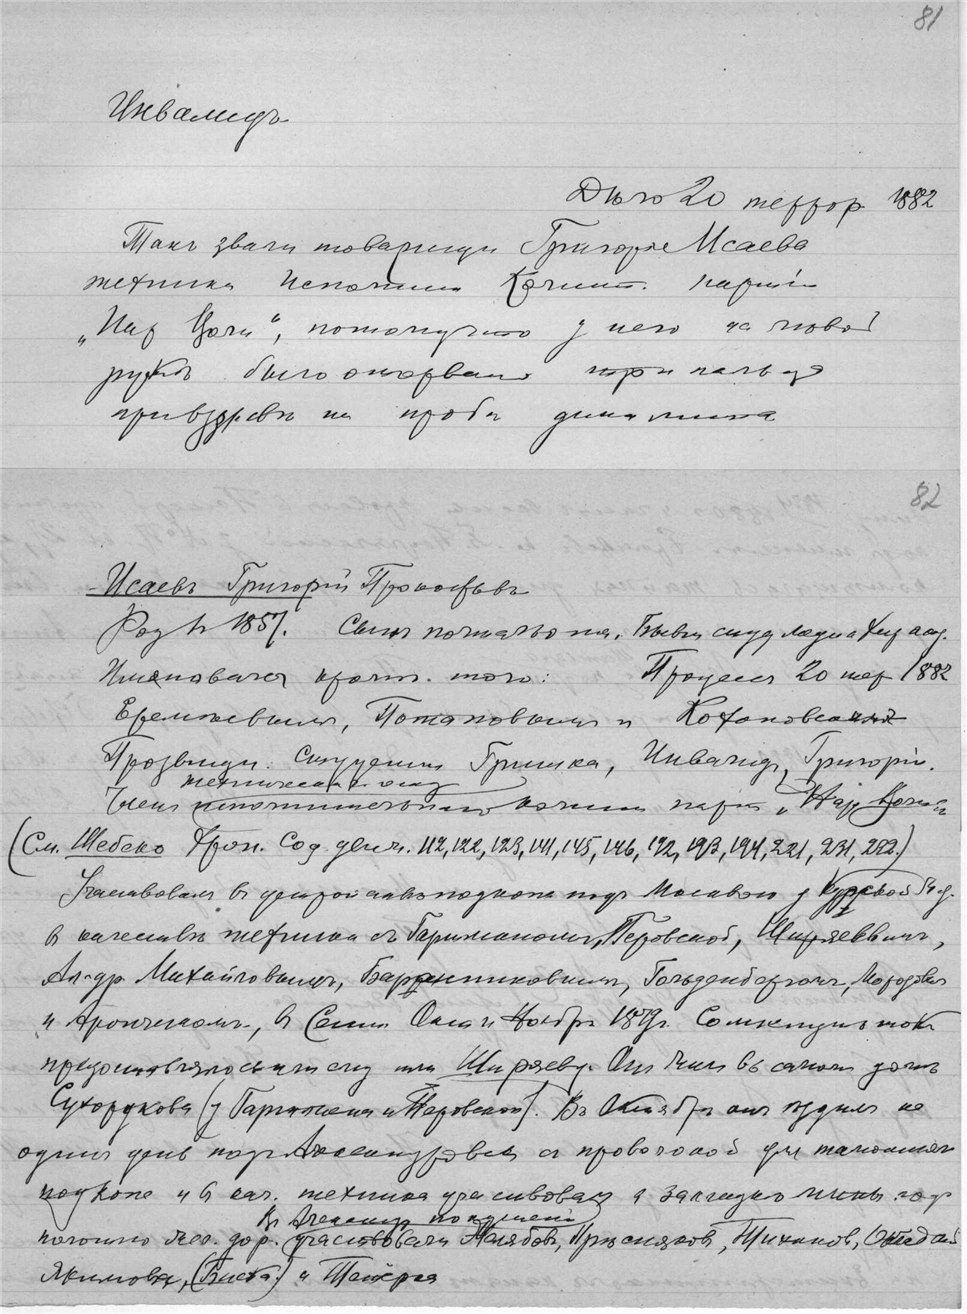 81
Инвалидъ
Дѣло 20 террор 1882
Такъ звали товарищи Григорiя Исаева
техника Исполнит Комит. партiи
„Нар Воли“, потому что у него на левой
рукѣ было оторвано три пальца
при взрывѣ на пробѣ динамита
82
Исаевъ Григорiй Прокофьевъ
Род въ 1857. Сынъ почтальона. Бывш студ медико хир акад.
Именовался кромѣ того: Процессъ 20 тер 1882
Еремѣевымъ, Потаповымъ и Кохановскимъ
Прозвища: Гришка, Инвалидъ, Григорiй.
Членъ исполнительнаго комит партiи „Нар Воли“
(См. Шебеко Хрон. Соц движ. 112, 122, 123, 141, 145, 146, 172, 193, 194, 221, 231, 282.)
Участвовалъ в устройствѣ подкопа подъ Москвою у Курской ж д.
в качествѣ техника съ Гартманомъ, Перовской, Ширяевымъ,
Ал-др Михайловымъ, Баранниковымъ, Гольденбергомъ, Морозовым
и Арончикомъ, в Сент Окт и Ноябрѣ 1879г. Сомкнуть токъ
предоставлялось или ему или Ширяеву. Онъ жилъ въ самомъ домѣ
Сухорукова (у Гартмана и Перовской). Въ Октябрѣ онъ ѣздилъ на
одинъ день подъ Александровскъ съ проволокой для тамошняго
подкопа и въ кач. техника участвовалъ в закладкѣ мины под
полотно жел. дор. Въ Александр покушенiи
участвовали Желябовъ, Прѣсняковъ, Тихоновъ, Окладскiй
Якимова, (Баска) и Тетерка